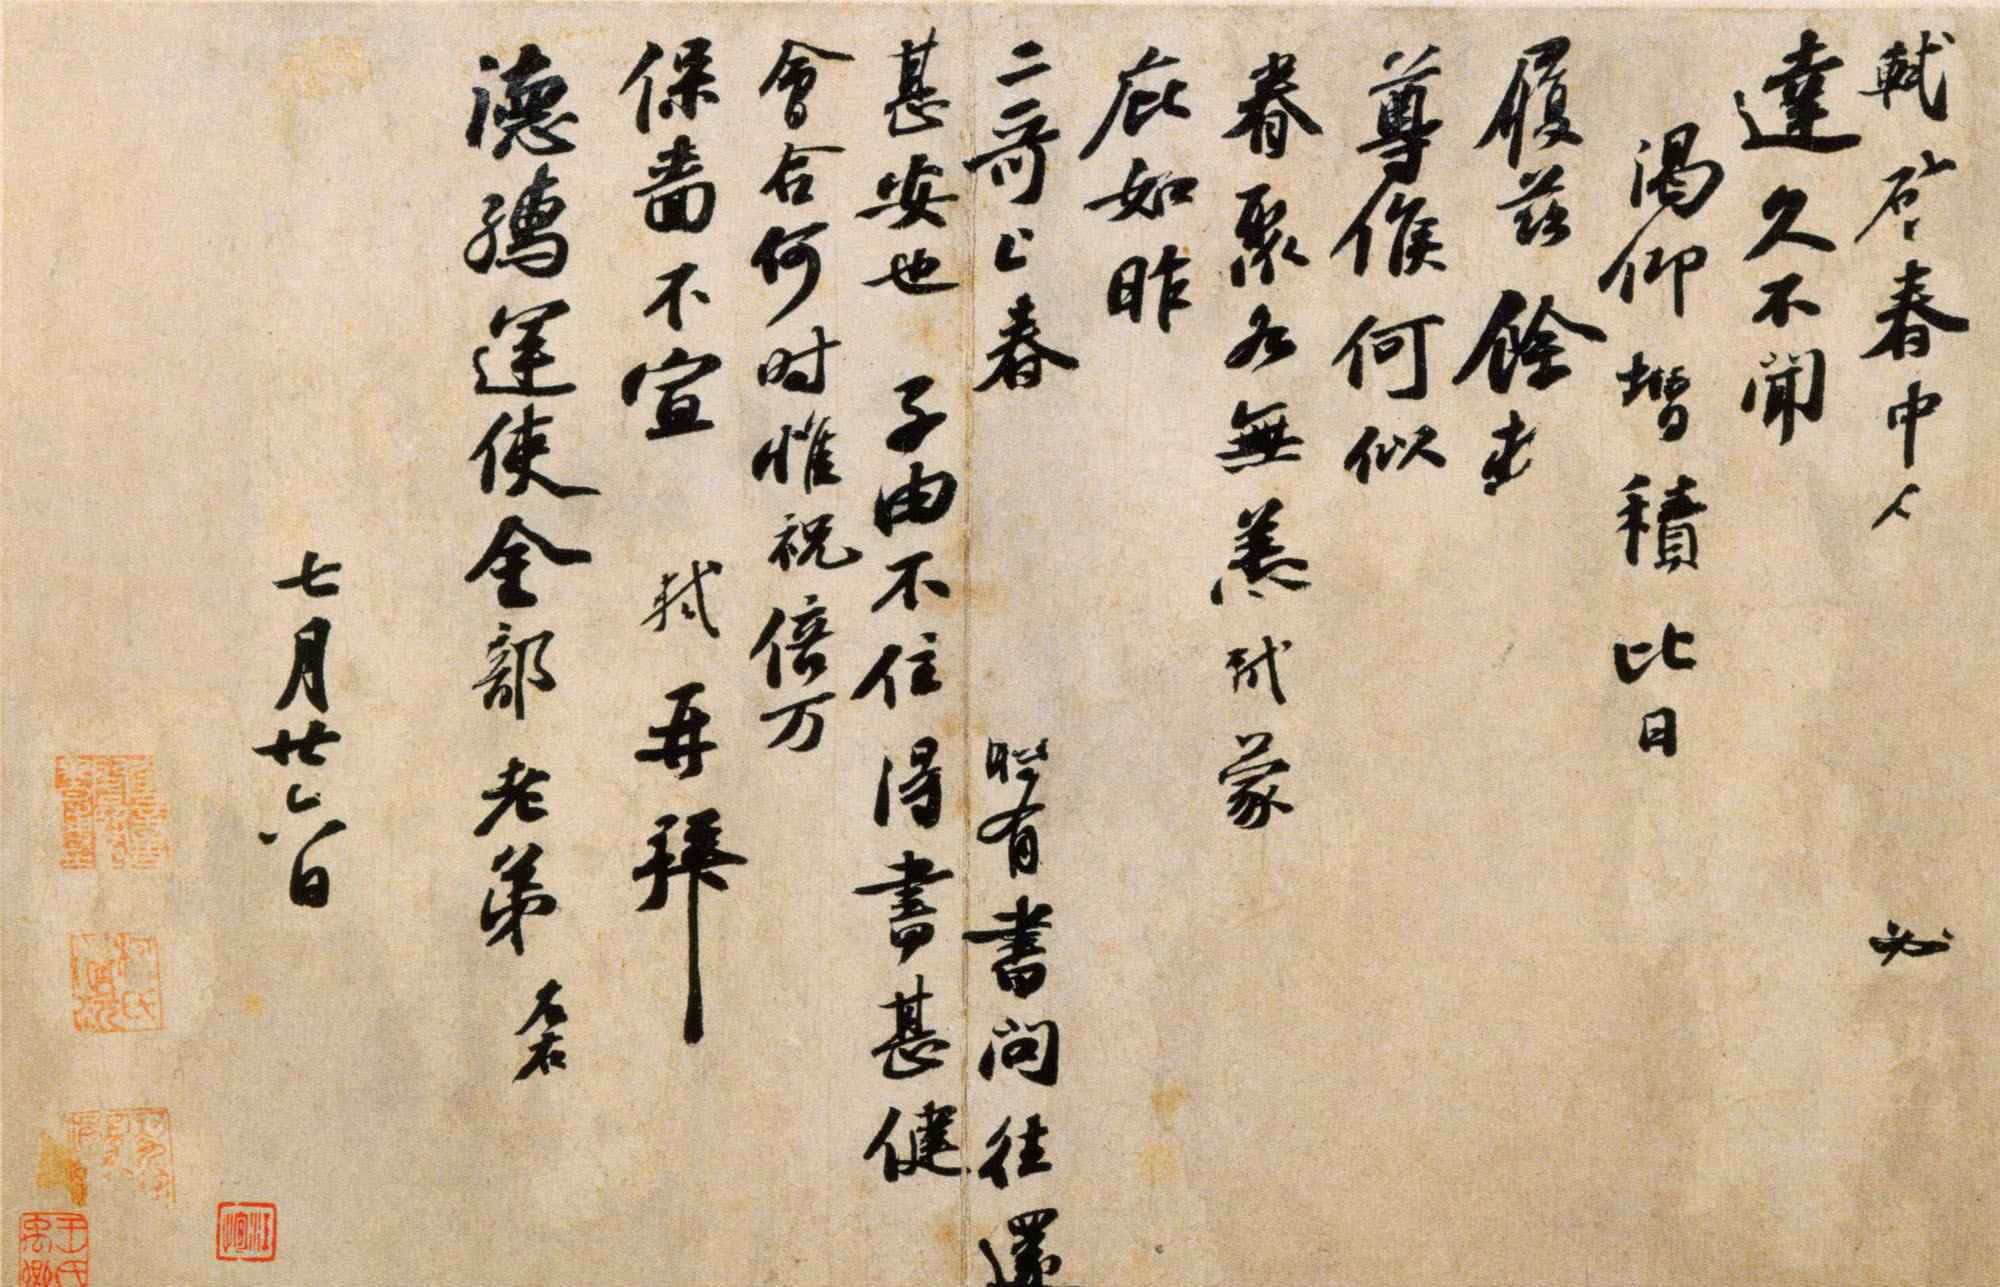 軾啓春中人必
達久不聞
渴仰增積比日
履茲餘春
尊候何似
眷聚各無恙軾蒙
庇如昨
二哥上春時有書問往還
甚安也子由不住得書甚健
會合何時惟祝倍万
保嗇不宣軾再拜
德孺運使金部老弟左右
七月廿六日